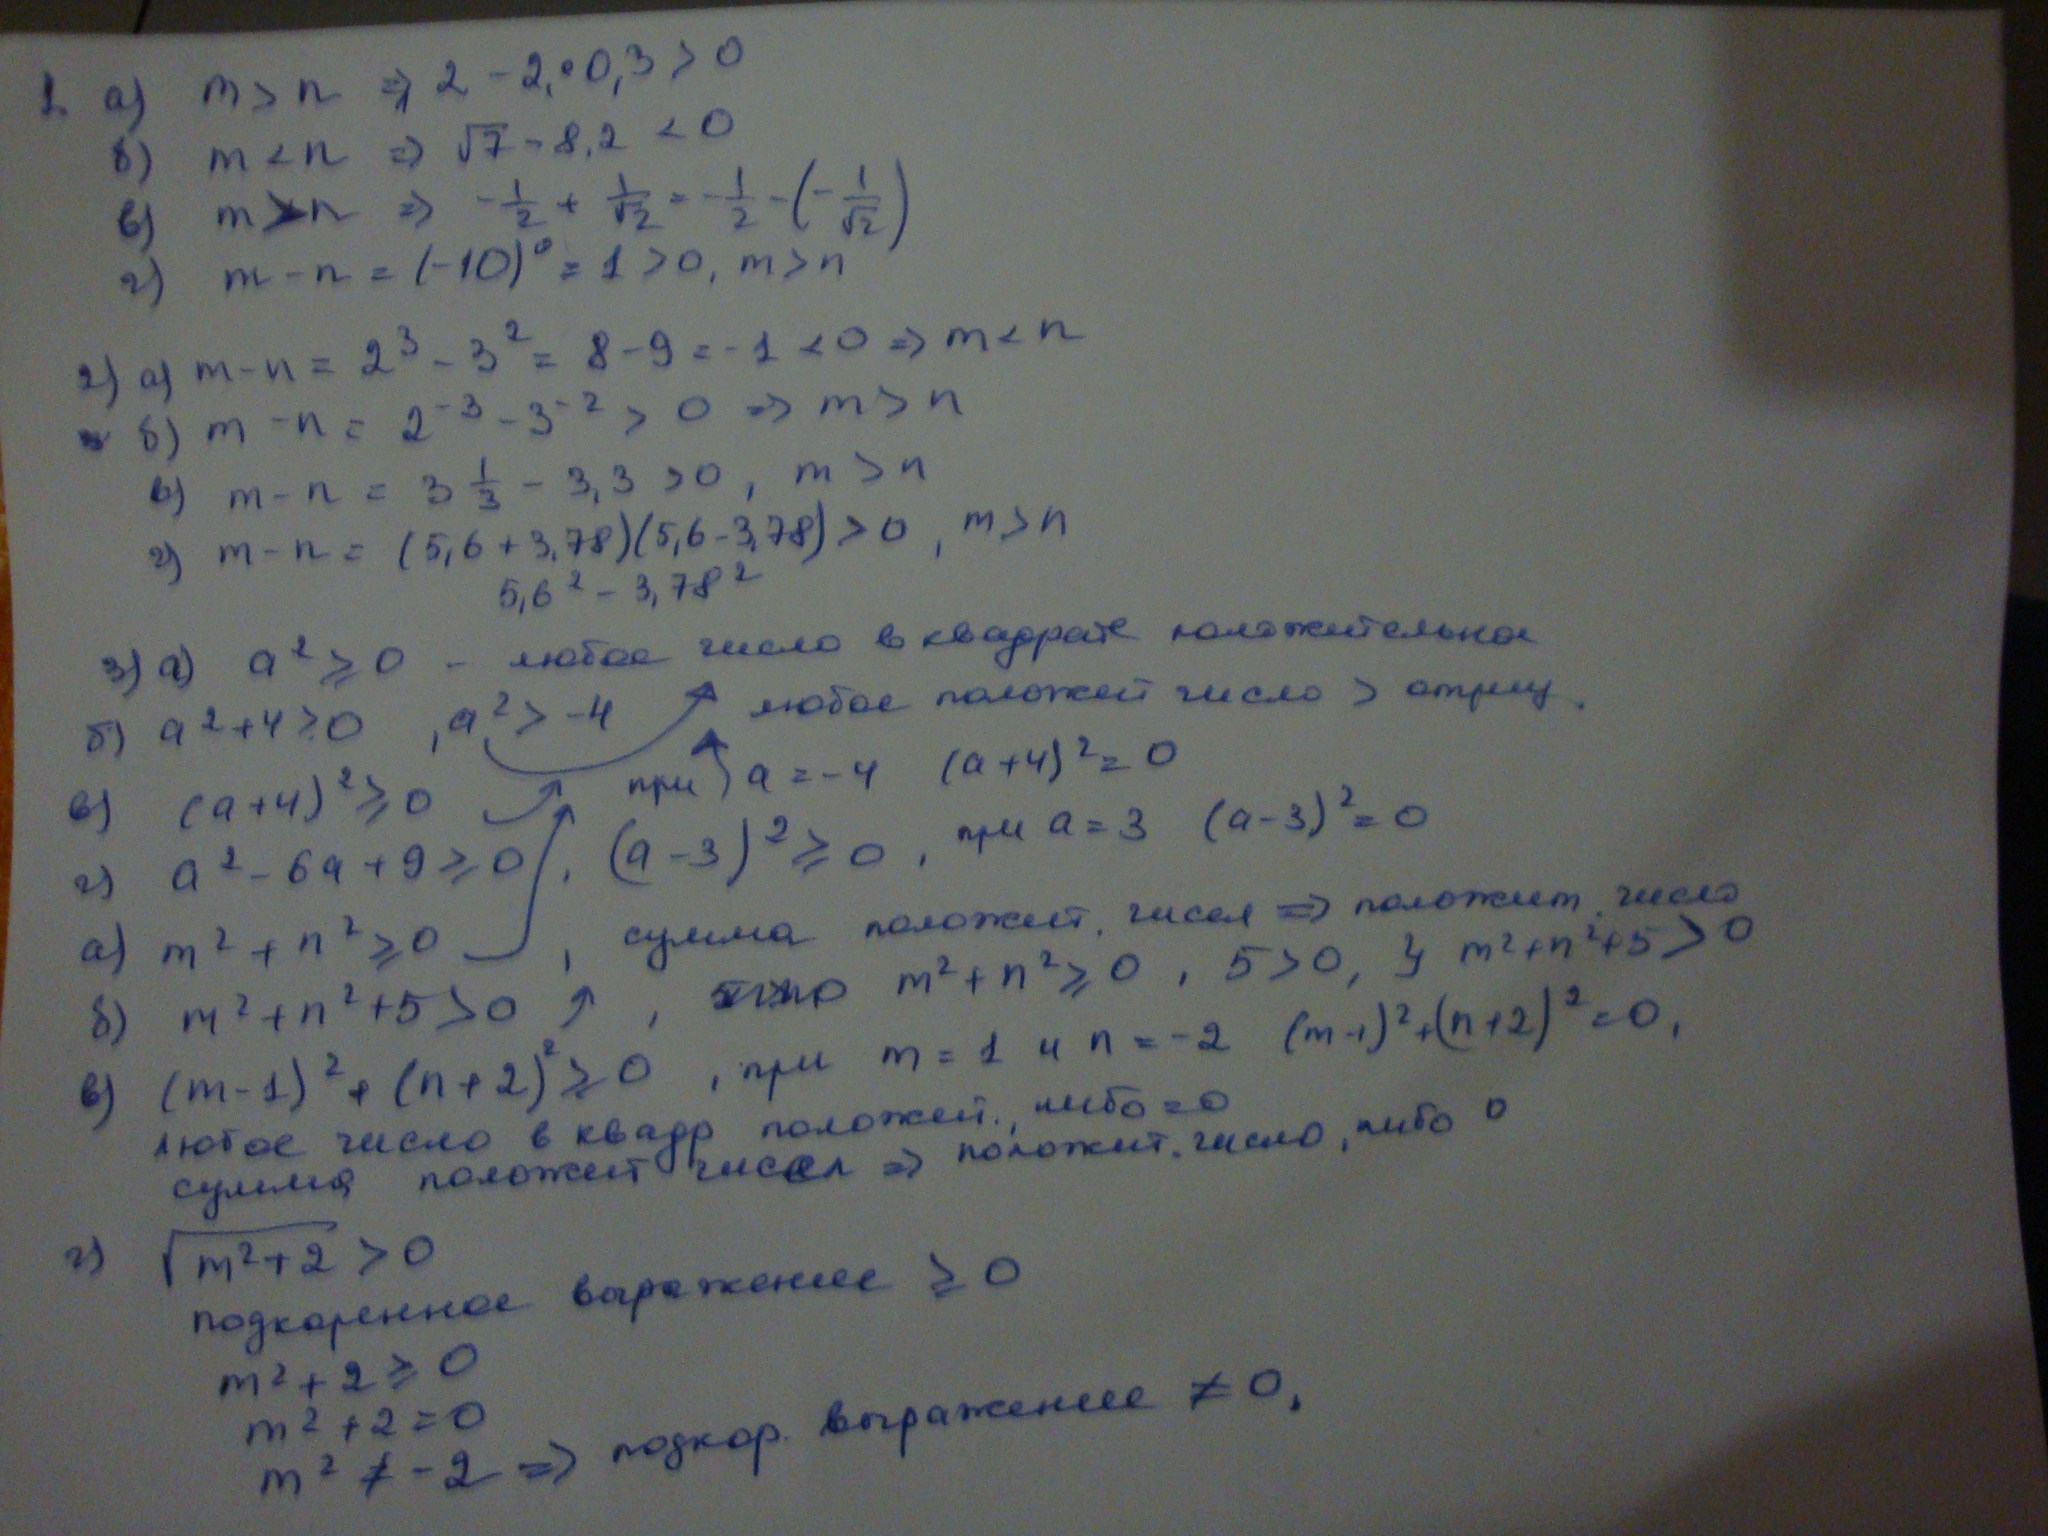 1. а) m > n ⇒ 2 - 2,0,3 > 0
б) m < n ⇒ √7 - 8,2 < 0
в) m > n ⇒ -1/2 + 1/√2 = -1/2 - (-1/√2)
г) m - n = (-10)⁰ = 1 > 0, m > n
2) а) m - n = 2³ - 3² = 8 - 9 = -1 < 0 ⇒ m < n
б) m - n = 2⁻³ - 3⁻² > 0 ⇒ m > n
в) m - n = 3 1/3 - 3,3 > 0, m > n
г) m - n = (5,6 + 3,78)(5,6 - 3,78) > 0, m > n
5,6² - 3,78²
3) а) a² ≥ 0 - любое число в квадрате положительное
б) a² + 4 ≥ 0, a² > -4 любое положит число > отриц.
в) (a + 4)² ≥ 0 при a = -4 (a + 4)² = 0
г) a² - 6a + 9 ≥ 0, (a - 3)² ≥ 0, при a = 3 (a - 3)² = 0
а) m² + n² ≥ 0, сумма положит. чисел ⇒ положит. число
б) m² + n² + 5 > 0, m² + n² ≥ 0, 5 > 0, m² + n² + 5 > 0
в) (m - 1)² + (n + 2)² ≥ 0, при m = 1 и n = -2 (m - 1)² + (n + 2)² = 0,
любое число в квадр положит., либо = 0
сумма положит чисел ⇒ положит. число, либо 0
г) √m² + 2 > 0
подкоренное выражение ≥ 0
m² + 2 ≥ 0
m² + 2 = 0
m² ≠ -2 ⇒ подкор. выражение ≠ 0,